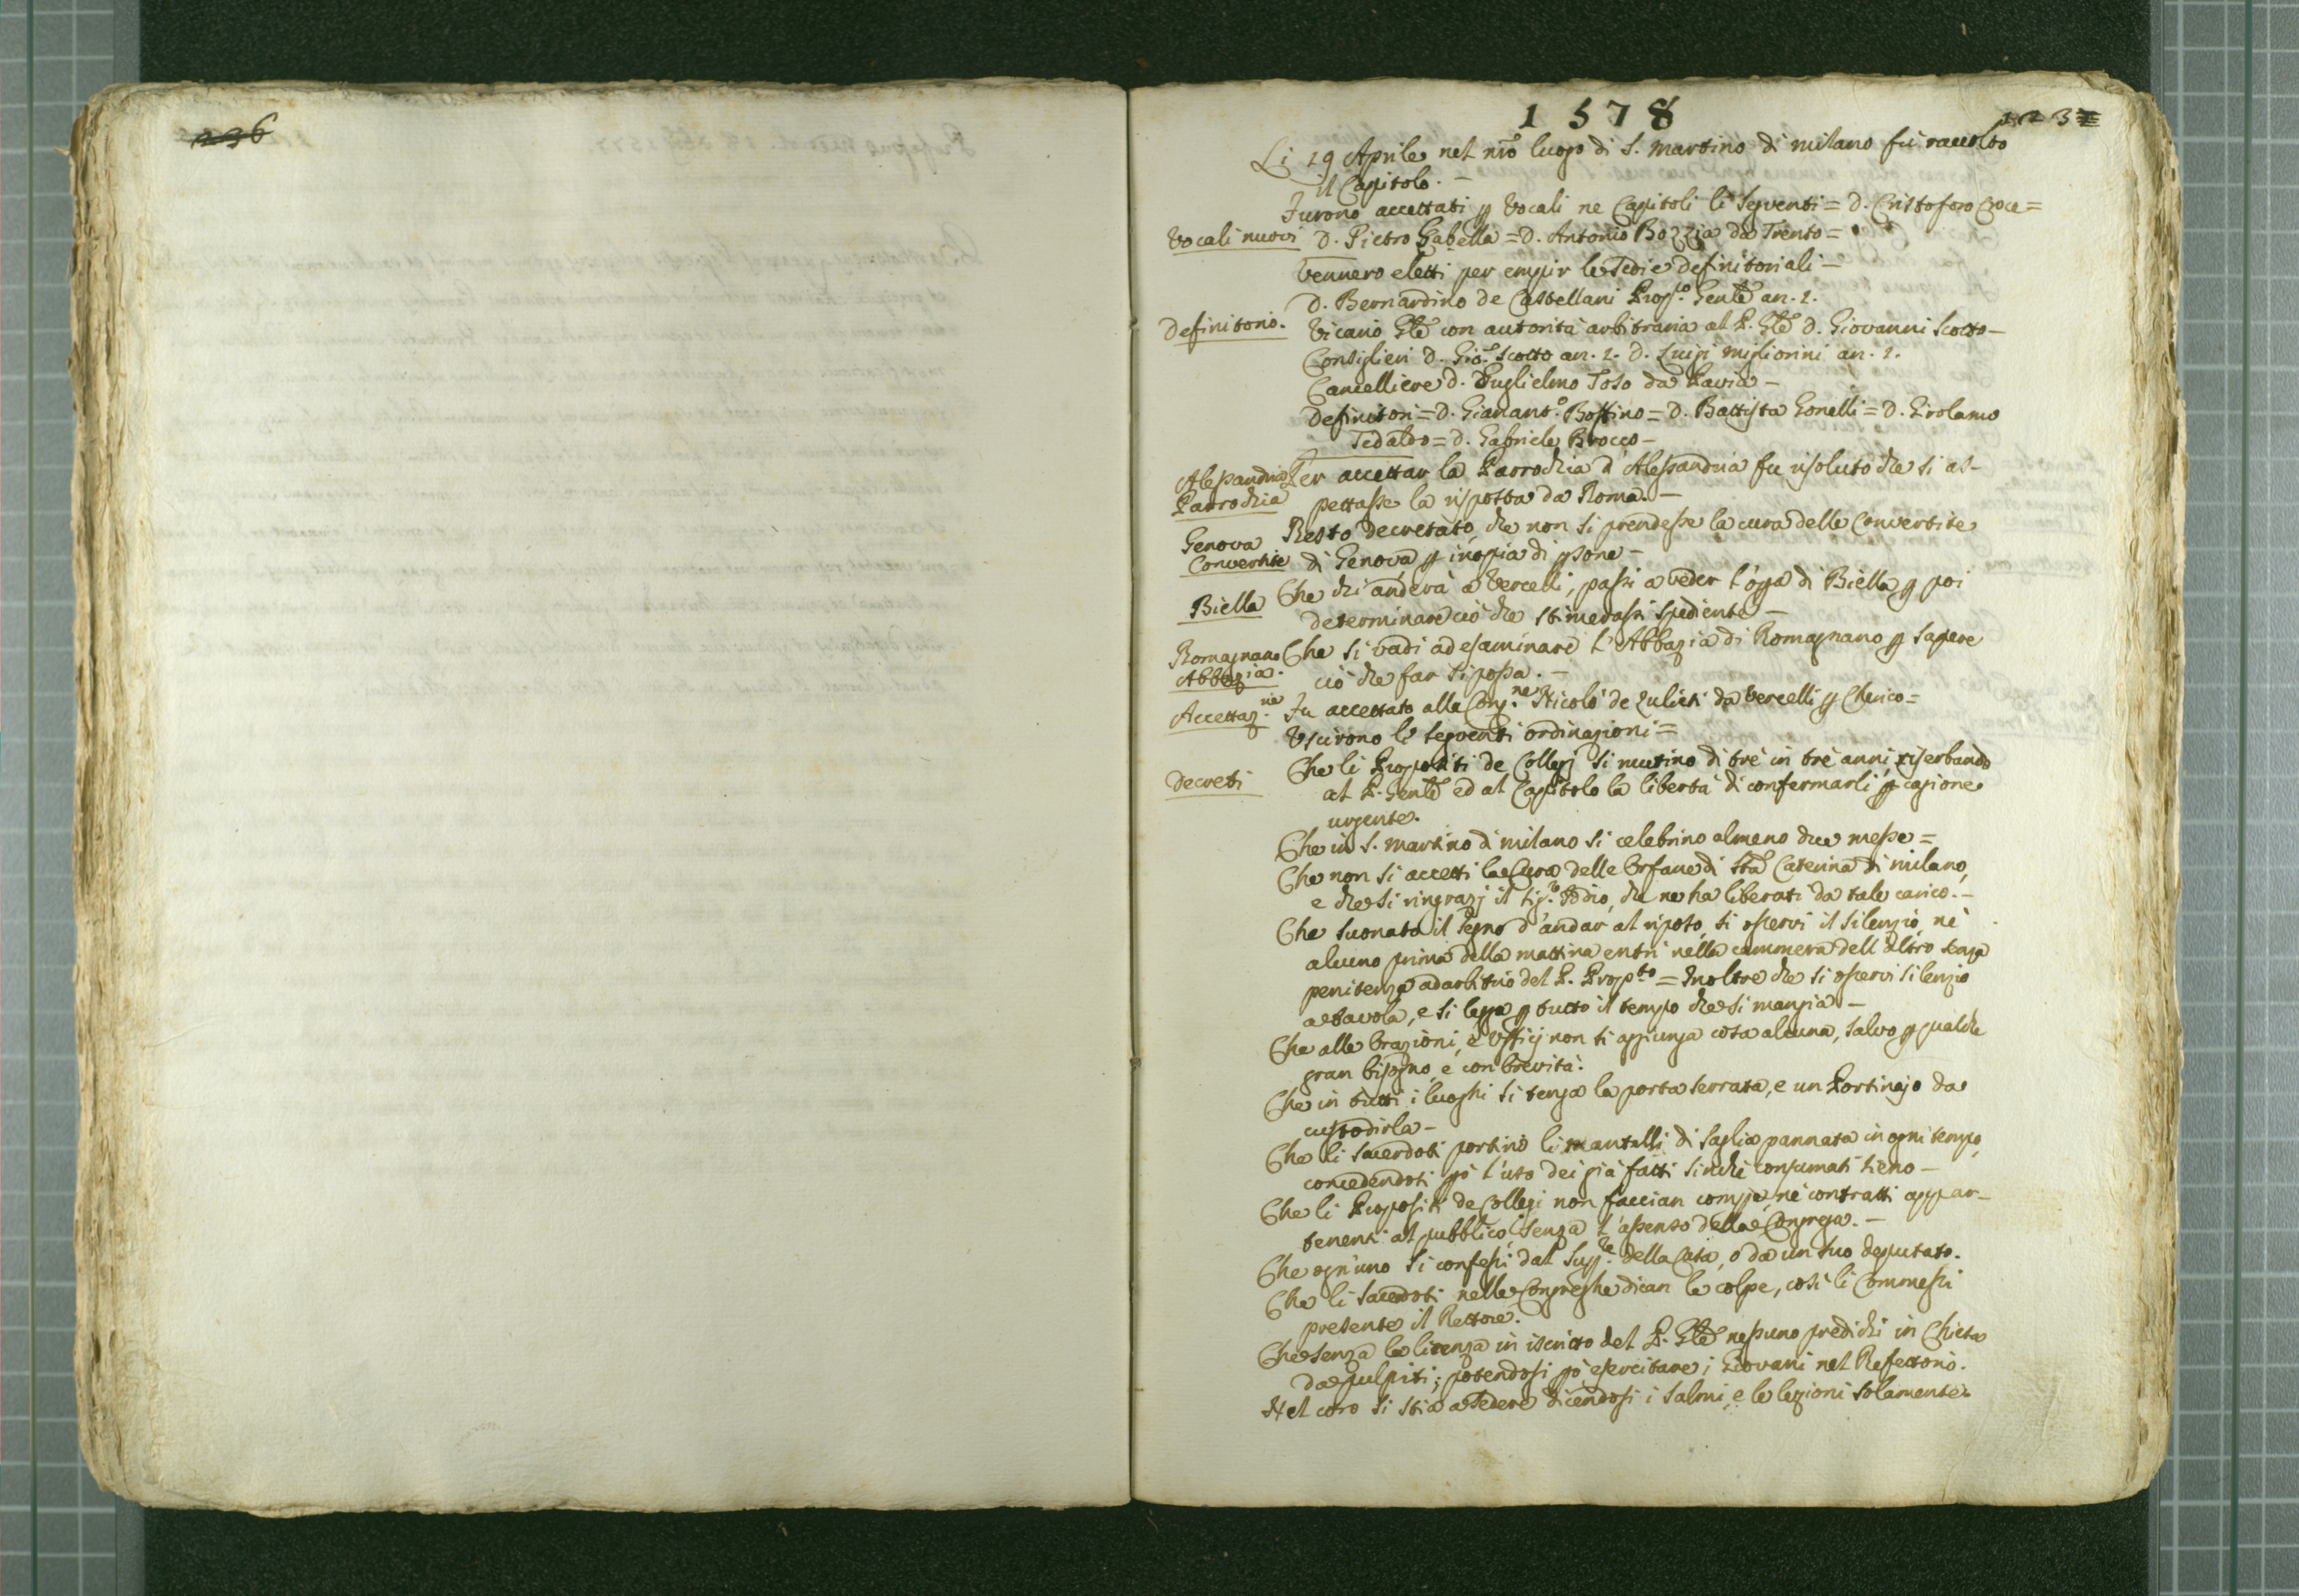 236
1578
1237
Li 19 Aprile nel nrõ luogo di S. Martino di Milano fù raccolto
il Capitolo. -
Furono accettati p vocali ne Capitoli li seguenti = D. Cristoforo Croce =
Vocali nuovi
D. Pietro Gabella = D. Antonio Bozzia da Trento =
Vennero eletti per empir le Sedie definitoriali -
D. Bernardino de Castellani Prop.to Genlẽ an. 2.
Definitorio.
Vicario Glẽ con autorità arbitraria al P. Glẽ D. Giovanni Scotto -
Consiglieri D. Gio: Scotto an. 2. D. Luigi Migliorini an. 2.
Cancelliere D. Guglielmo Toso da Pavia -
Definitori = D. Gianant.o Bossino = D. Battista Gonelli = D. Girolamo
Tedaldo = D. Gabriele Brocco -
Alessandria
Parrochia
Per accettar la Parrochia d'Alessandria fu risoluto che si as-
pettasse la risposta da Roma. -
Genova
Convertite
Restò decretato, che non si prendesse la cura delle Convertite
di Genova p inopia di psone -
Biella
Che chi anderà a Vercelli, passi a veder l'opa di Biella p poi
determinare ciò che stimerassi spediente -
Romagnano
Abbazia.
Che si vadi ad esaminare l'Abbazia di Romagnano p sapere
ciò che far si possa. -
Accettaz.ne
Fu accettato alla Cong.ne Nicolò de Zulieti da Vercelli p Cherico =
Uscirono le seguenti ordinazioni =
Decreti
Che li Propositi de Collegj si mutino di trè in trè anni, riserbando
al P. Genlẽ ed al Capitolo la libertà di confermarli p cagione
urgente.
Che in S. Martino di Milano si celebrino almeno due messe =
Che non si accetti la Cura delle Orfane di Stã Caterina di Milano,
e che si ringrazj il Sig.re Iddio, che ne ha liberati da tale carico. -
Che suonato il segno d'andar al riposo, si osservi il silenzio, nè
alcuno prima della mattina entri nella cammera dell'altro senza
penitenza ad arbitrio del P. Prop.to = Inoltre che si osservi silenzio
a tavola, e si legga p tutto il tempo che si mangia -
Che alle Orazioni, e Ufficj non si aggiunga cosa alcuna, salvo p qualche
gran bisogno, e con brevità.
Che in tutti i luoghi si tenga la porta serrata, e un Portinajo da
custodirla -
Che li Sacerdoti portino li mantelli di saglia pannata in ogni tempo,
concedendosi pò l'uso dei già fatti sinchè consumati sieno -
Che li Propositi de Collegi non faccian compre, nè contratti appar-
tenenti al pubblico, senza l'assenso della Congrega. -
Che ogn'uno si confessi dal Sup.re della Casa, o da un suo deputato.
Che li Sacerdoti nelle Congreghe dican le colpe, così li Commessi
presente il Rettore.
Che senza la licenza in iscritto del P. Glẽ nessuno predichi in Chiesa
da pulpiti; potendosi pò esercitare i Giovani nel Refettorio.
Nel coro si stia a sedere dicendosi i salmi, e le lezioni solamente.